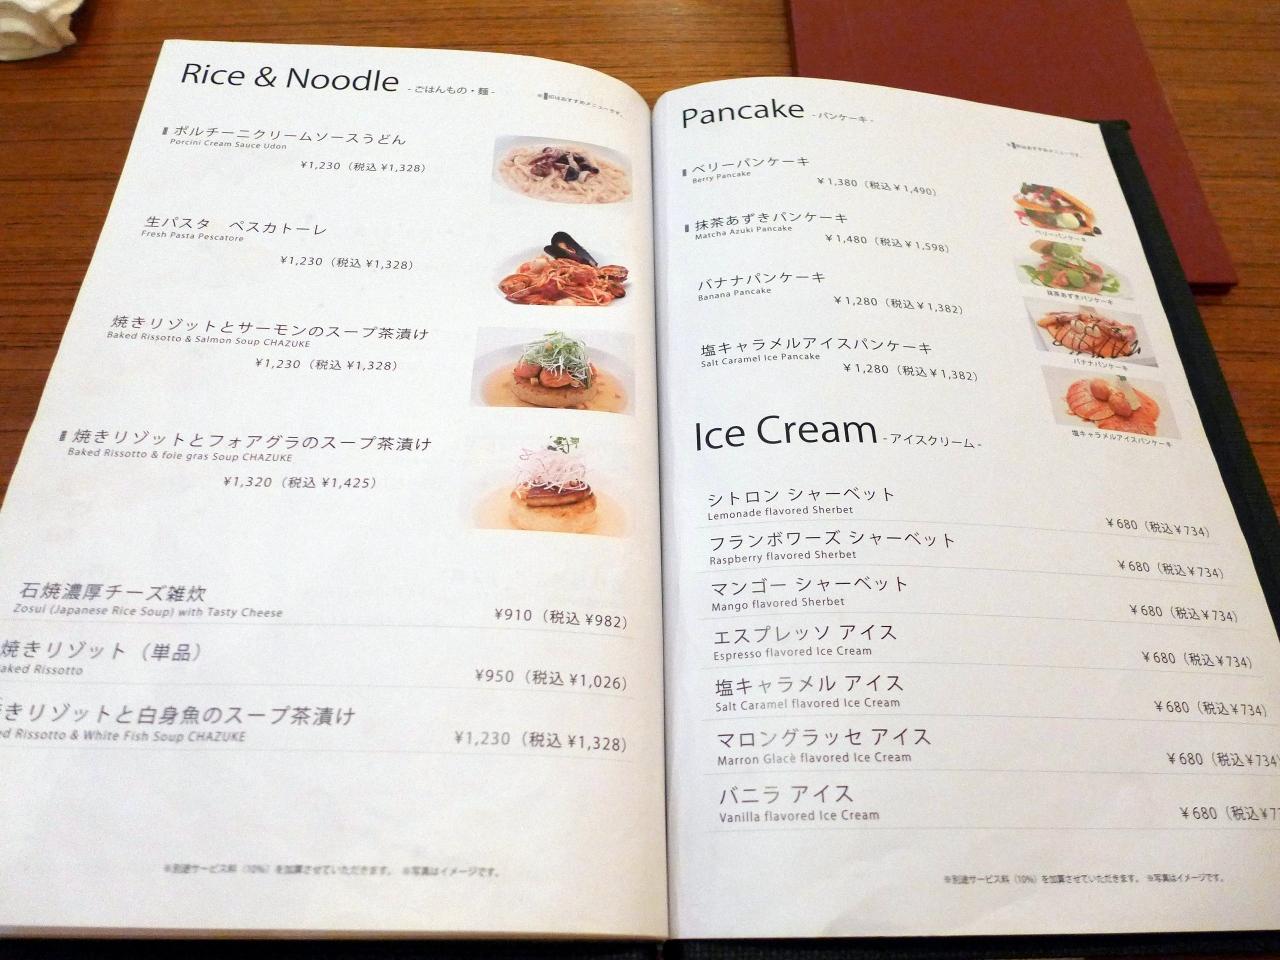 Rice & Noodle - ごはんもの・麺 -
※▮印はおすすめメニューです。
ポルチーニクリームソースうどん
Porcini Cream Sauce Udon
¥1,230（税込 ¥1,328）
生パスタ　ペスカトーレ
Fresh Pasta Pescatore
¥1,230（税込 ¥1,328）
焼きリゾットとサーモンのスープ茶漬け
Baked Rissotto & Salmon Soup CHAZUKE
¥1,230（税込 ¥1,328）
焼きリゾットとフォアグラのスープ茶漬け
Baked Rissotto & foie gras Soup CHAZUKE
¥1,320（税込 ¥1,425）
石焼濃厚チーズ雑炊
Zosui (Japanese Rice Soup) with Tasty Cheese
¥910（税込 ¥982）
焼きリゾット（単品）
aked Rissotto
¥950（税込 ¥1,026）
きリゾットと白身魚のスープ茶漬け
ed Rissotto & White Fish Soup CHAZUKE
¥1,230（税込 ¥1,328）
※別途サービス料（10%）を加算させていただきます。 ※写真はイメージです。
Pancake - パンケーキ -
※▮印はおすすめメニューです。
ベリーパンケーキ
Berry Pancake
¥1,380（税込¥1,490）
抹茶あずきパンケーキ
Matcha Azuki Pancake
¥1,480（税込¥1,598）
バナナパンケーキ
Banana Pancake
¥1,280（税込¥1,382）
塩キャラメルアイスパンケーキ
Salt Caramel Ice Pancake
¥1,280（税込¥1,382）
ベリーパンケーキ
抹茶あずきパンケーキ
バナナパンケーキ
塩キャラメルアイスパンケーキ
Ice Cream - アイスクリーム -
シトロン シャーベット
Lemonade flavored Sherbet
¥680（税込¥734）
フランボワーズ シャーベット
Raspberry flavored Sherbet
¥680（税込¥734）
マンゴー シャーベット
Mango flavored Sherbet
¥680（税込¥734）
エスプレッソ アイス
Espresso flavored Ice Cream
¥680（税込¥734）
塩キャラメル アイス
Salt Caramel flavored Ice Cream
¥680（税込¥734）
マロングラッセ アイス
Marron Glacè flavored Ice Cream
¥680（税込¥734
バニラ アイス
Vanilla flavored Ice Cream
¥680（税込¥7
※別途サービス料（10%）を加算させていただきます。 ※写真はイメージです。